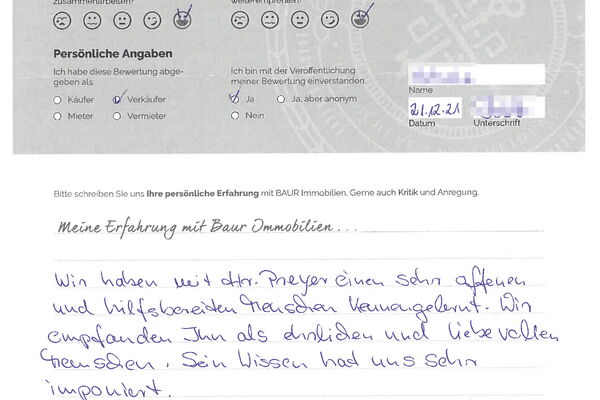 zusammenarbeiten?
weiterempfehlen?
Persönliche Angaben
Ich habe diese Bewertung abge-
geben als:
Käufer Verkäufer
Mieter Vermieter
Ich bin mit der Veröffentlichung
meiner Bewertung einverstanden.
Ja Ja, aber anonym
Nein
Name
21.12.21
Datum Unterschrift
Bitte schreiben Sie uns Ihre persönliche Erfahrung mit BAUR Immobilien. Gerne auch Kritik und Anregung.
Meine Erfahrung mit Baur Immobilien...
Wir haben mit Hr. Preyer einen sehr offenen
und hilfsbereiten Menschen kennengelernt. Wir
empfanden Ihn als ehrlichen und liebevollen
Menschen. Sein Wissen hat uns sehr
imponiert.